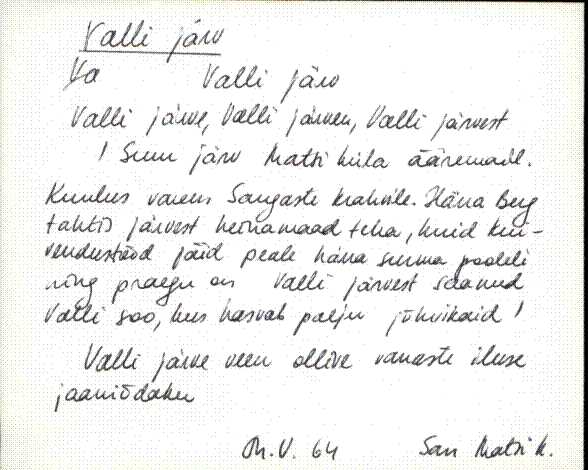 Valli järv
Va Valli järv
Valli järve, Valli järven, Valli järvest
! Suur järv Matsi küla ääremail.
Kuulus varem Sangaste krahvile. Härra Berg
tahtis järvest heinamaad teha, kuid kui-
vendustööd jäid peale härra surma pooleli
ning praegu on Valli järvest saanud
Valli soo, kus kasvab palju jõhvikaid !
Valli järve veen ollive vanaste iluse
jaaniõdaku
M.V. 64 San Matsi k.